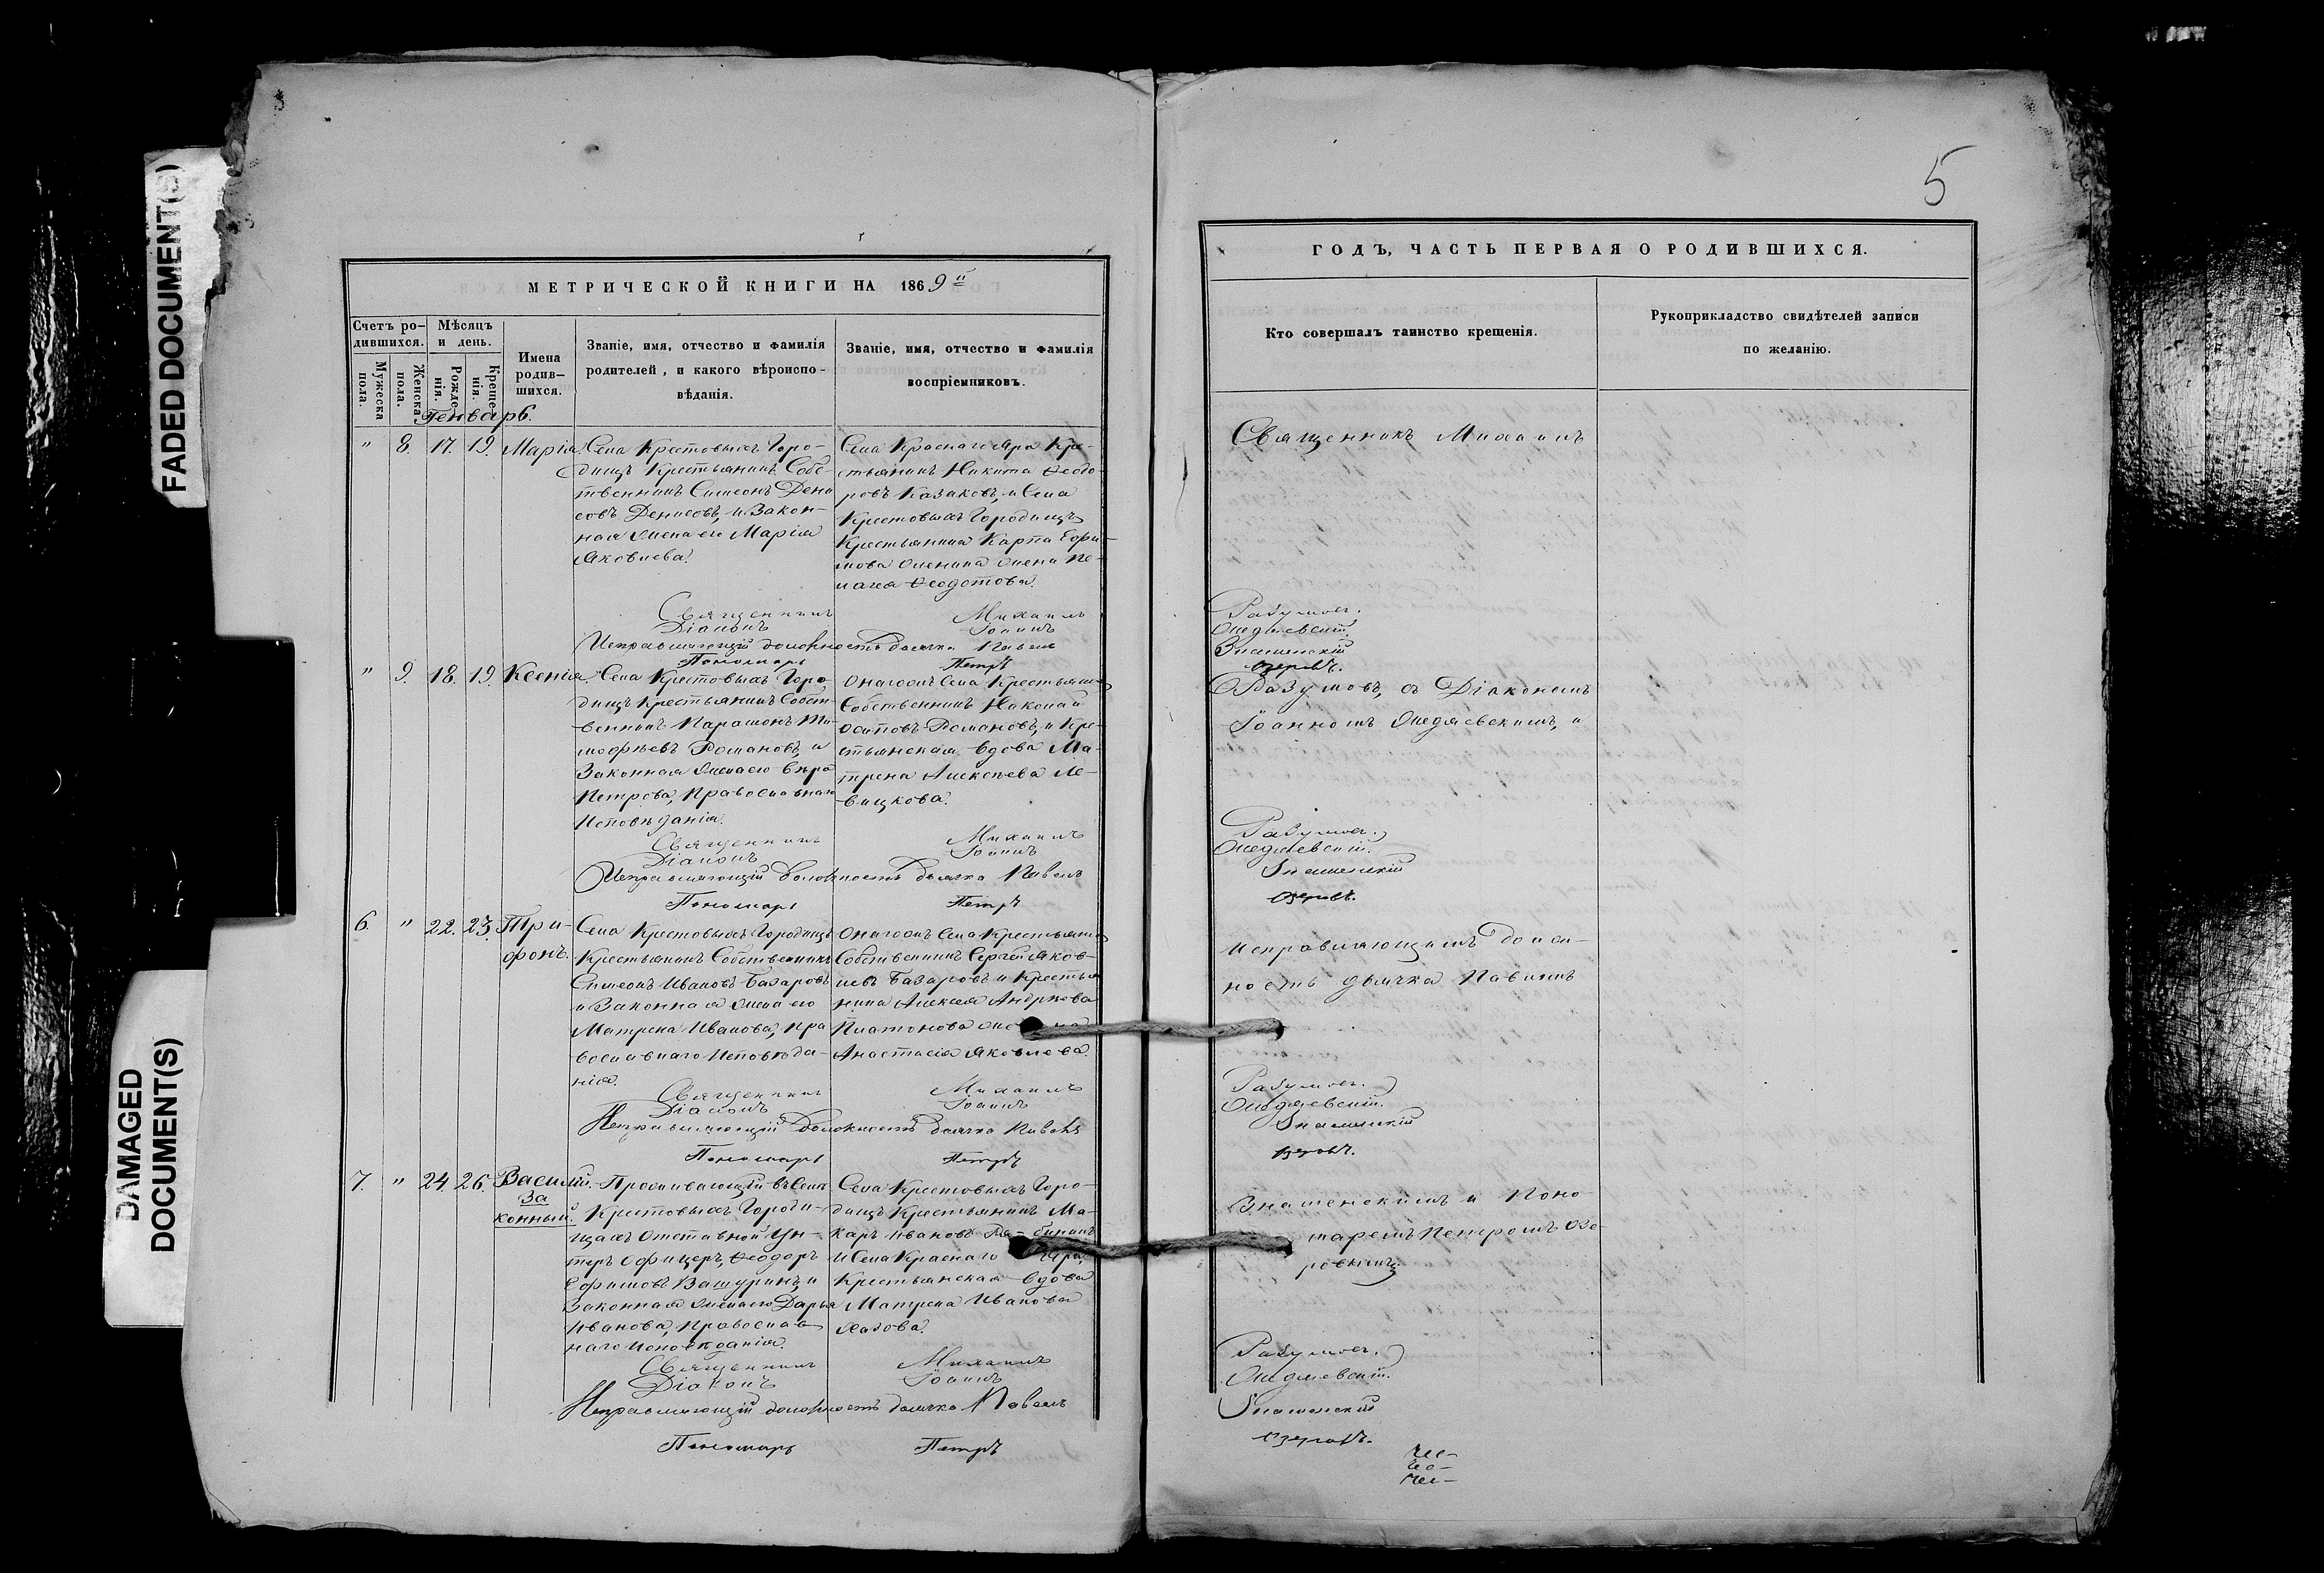 5
FADED DOCUMENT(S)
DAMAGED
DOCUMENT(S)
МЕТРИЧЕСКОЙ КНИГИ НА 1869й
Счетъ ро-
дившихся.
Мужеска
пола.
Женска
пола.
Мѣсяцъ
и день.
Рожде
нія.
Креще
нія.
Имена
родив-
шихся.
Званіе, имя, отчество и фамилія
родителей, и какого вѣроиспо-
вѣданія.
Званіе, имя, отчество и фамилія
воспріемниковъ.
Генварь.
" 8. 17. 19. Марія
Села Крестовыхъ Горо-
дищъ Крестьянинъ Собс-
твенникъ Симеонъ Дени
совъ Денисовъ, и Закон-
ная жена его Марія
Яковлева.
Села Краснаго Яра Кре-
стьянинъ Никита Ѳеодо-
ровъ Казаковъ, и Села
Крестовыхъ Городищъ
Крестьянина Карпа Ефи-
мова жена Пе-
лагея Ѳеодотова.
Священникъ Михаилъ
Діаконъ Іоаннъ
Исправляющій должность дьячка Павелъ
Пономарь Петръ
" 9. 18. 19. Ксенія
Села Крестовыхъ Горо-
дищъ Крестьянинъ Собст-
венникъ Парамонъ Ти-
мофѣевъ Романовъ, и
Законная жена его Вѣра
Петрова, Православнаго
Исповѣданія.
Онагожъ Села Крестьянинъ
Собственникъ Николай
Осиповъ Романовъ, и Кре-
стьянская вдова Ма-
трена Алексѣева Ле-
вицкова.
Священникъ Михаилъ
Діаконъ Іоаннъ
Исправляющій должность дьячка Павелъ
Пономарь Петръ
6. " 22. 23. Три-
фонъ.
Села Крестовыхъ Городищъ
Крестьянинъ Собственникъ
Симеонъ Ивановъ Базаровъ
и Законная жена его
Матрена Иванова, пра
вославнаго Исповѣда-
нія.
Онагожъ Села Крестьянинъ
Собственникъ Сергѣй Яков-
левъ Базаровъ и Крестья
нина Алексея Андреева
Платонова жена
Анастасія Яковлева.
Священникъ Михаилъ
Діаконъ Іоаннъ
Исправляющій должность дьячка Павелъ
Пономарь Петръ
7. " 24. 26. Василій.
За
конный.
Проживающій въ Селѣ
Крестовыхъ Городи-
щахъ Отставной Ун-
теръ Офицеръ, Ѳеодоръ
Ефимовъ Вашуринъ, и
Законная жена его Дарья
Иванова, Православ
наго Исповѣданія.
Села Крестовыхъ Горо-
дищъ Крестьянинъ Ма-
каръ Ивановъ Рябининъ
и Села Краснаго Яра,
Крестьянская вдова
Матрена Иванова
Священникъ Михаилъ
Діаконъ Іоаннъ
Исправляющій должность дьячка Павелъ
Пономарь Петръ
ГОДЪ, ЧАСТЬ ПЕРВАЯ О РОДИВШИХСЯ.
Кто совершалъ таинство крещенія.
Рукоприкладство свидѣтелей записи
по желанію.
Священникъ Михаилъ
Разумовъ.
Ождяевскій.
Знаменскій
Озеровъ.
Разумовъ, съ Діакономъ
Іоанномъ Ождяевскимъ, и
Разумовъ.
Ождяевскій.
Знаменскій
Озеровъ.
исправляющимъ долж-
ность дьячка Павломъ
Разумовъ.
Ождяевскій.
Знаменскій
Озеровъ.
Знаменскимъ и Поно-
маремъ Петромъ Озе-
ровымъ.
Разумовъ.
Ождяевскій.
Знаменскій
Озеровъ.